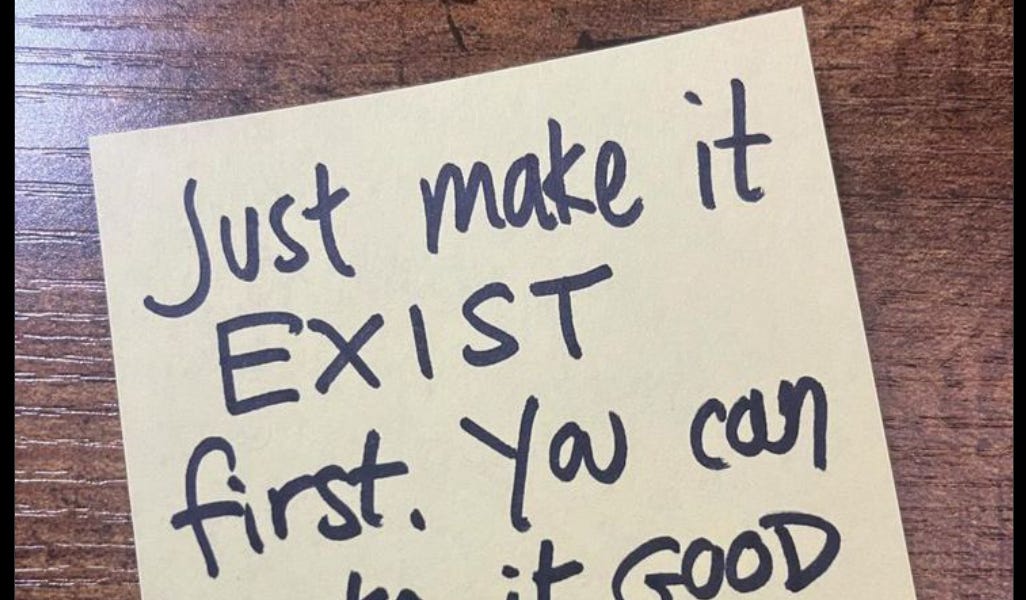 Just make it
EXIST
first. You can
it GOOD